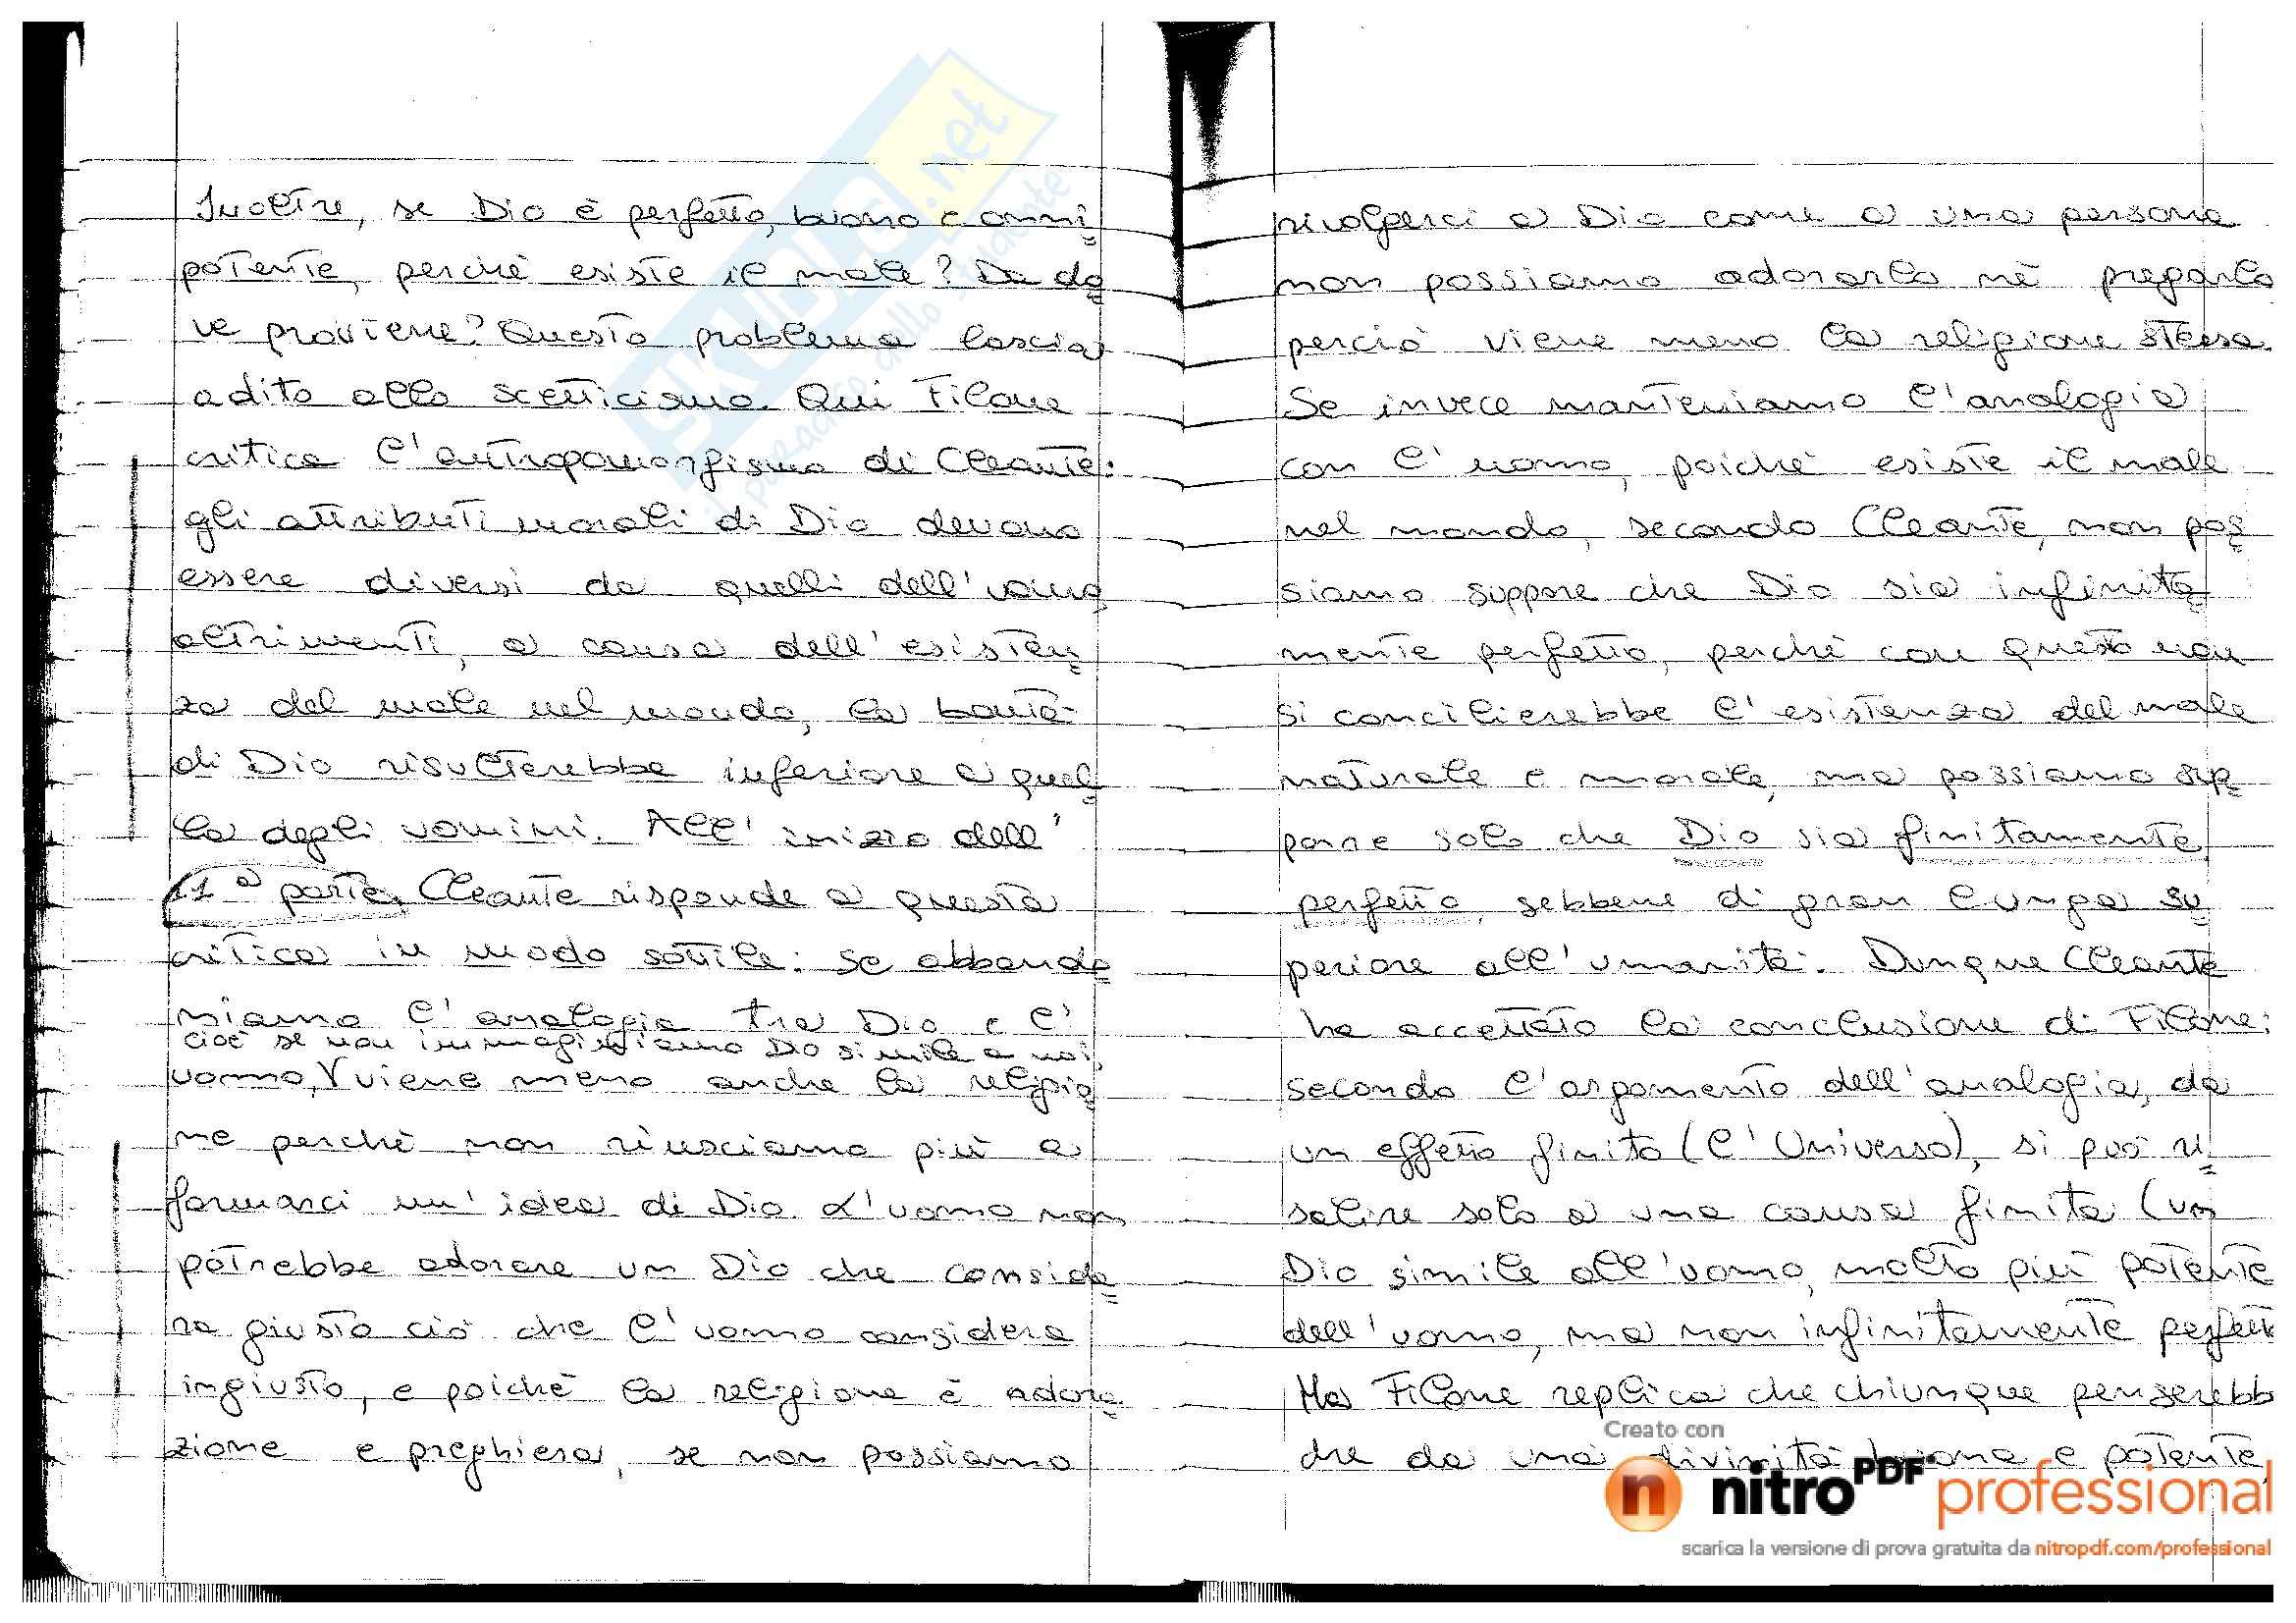 Inoltre, se Dio è perfetto, buono e onni=
potente, perchè esiste il male? Da do=
ve proviene? Questo problema lascia
adito allo scetticismo. Qui Filone
critica l'antropomorfismo di Cleante:
gli attributi morali di Dio devono
essere diversi da quelli dell'uomo
altrimenti, a causa dell'esisten=
za del male nel mondo, la bontà
di Dio risulterebbe inferiore a quel=
la degli uomini. All'inizio dell'
11ª parte, Cleante risponde a questa
critica in modo sottile: se abbando=
niamo l'analogia tra Dio e l'
cioè se non immaginiamo Dio simile a noi,
uomo, V viene meno anche la religio=
ne perchè non riusciamo più a
formarci un'idea di Dio. L'uomo non
potrebbe adorare un Dio che conside=
ra giusto ciò che l'uomo considera
ingiusto, e poichè la religione è adora=
zione e preghiera, se non possiamo
rivolgerci a Dio come a una persona
non possiamo adorarlo nè pregarlo
perciò viene meno la religione stessa.
Se invece manteniamo l'analogia
con l'uomo, poichè esiste il male
nel mondo, secondo Cleante, non pos=
siamo suppore che Dio sia infinita=
mente perfetto, perchè con questo non
si concilierebbe l'esistenza del male
naturale e morale, ma possiamo sup=
porre solo che Dio sia finitamente
perfetto, sebbene di gran lunga su=
periore all'umanità. Dunque Cleante
ha accettato la conclusione di Filone:
secondo l'argomento dell'analogia, da
un effetto finito (l'Universo), si può ri=
salire solo a una causa finita (un
Dio simile all'uomo, molto più potente
dell'uomo, ma non infinitamente perfett
Ma Filone replica che chiunque penserebb
che da una divinità buona e potente,
SKUOLA.net
il paradiso dello studente
Creato con
nitroPDF professional
scarica la versione di prova gratuita da nitropdf.com/professional